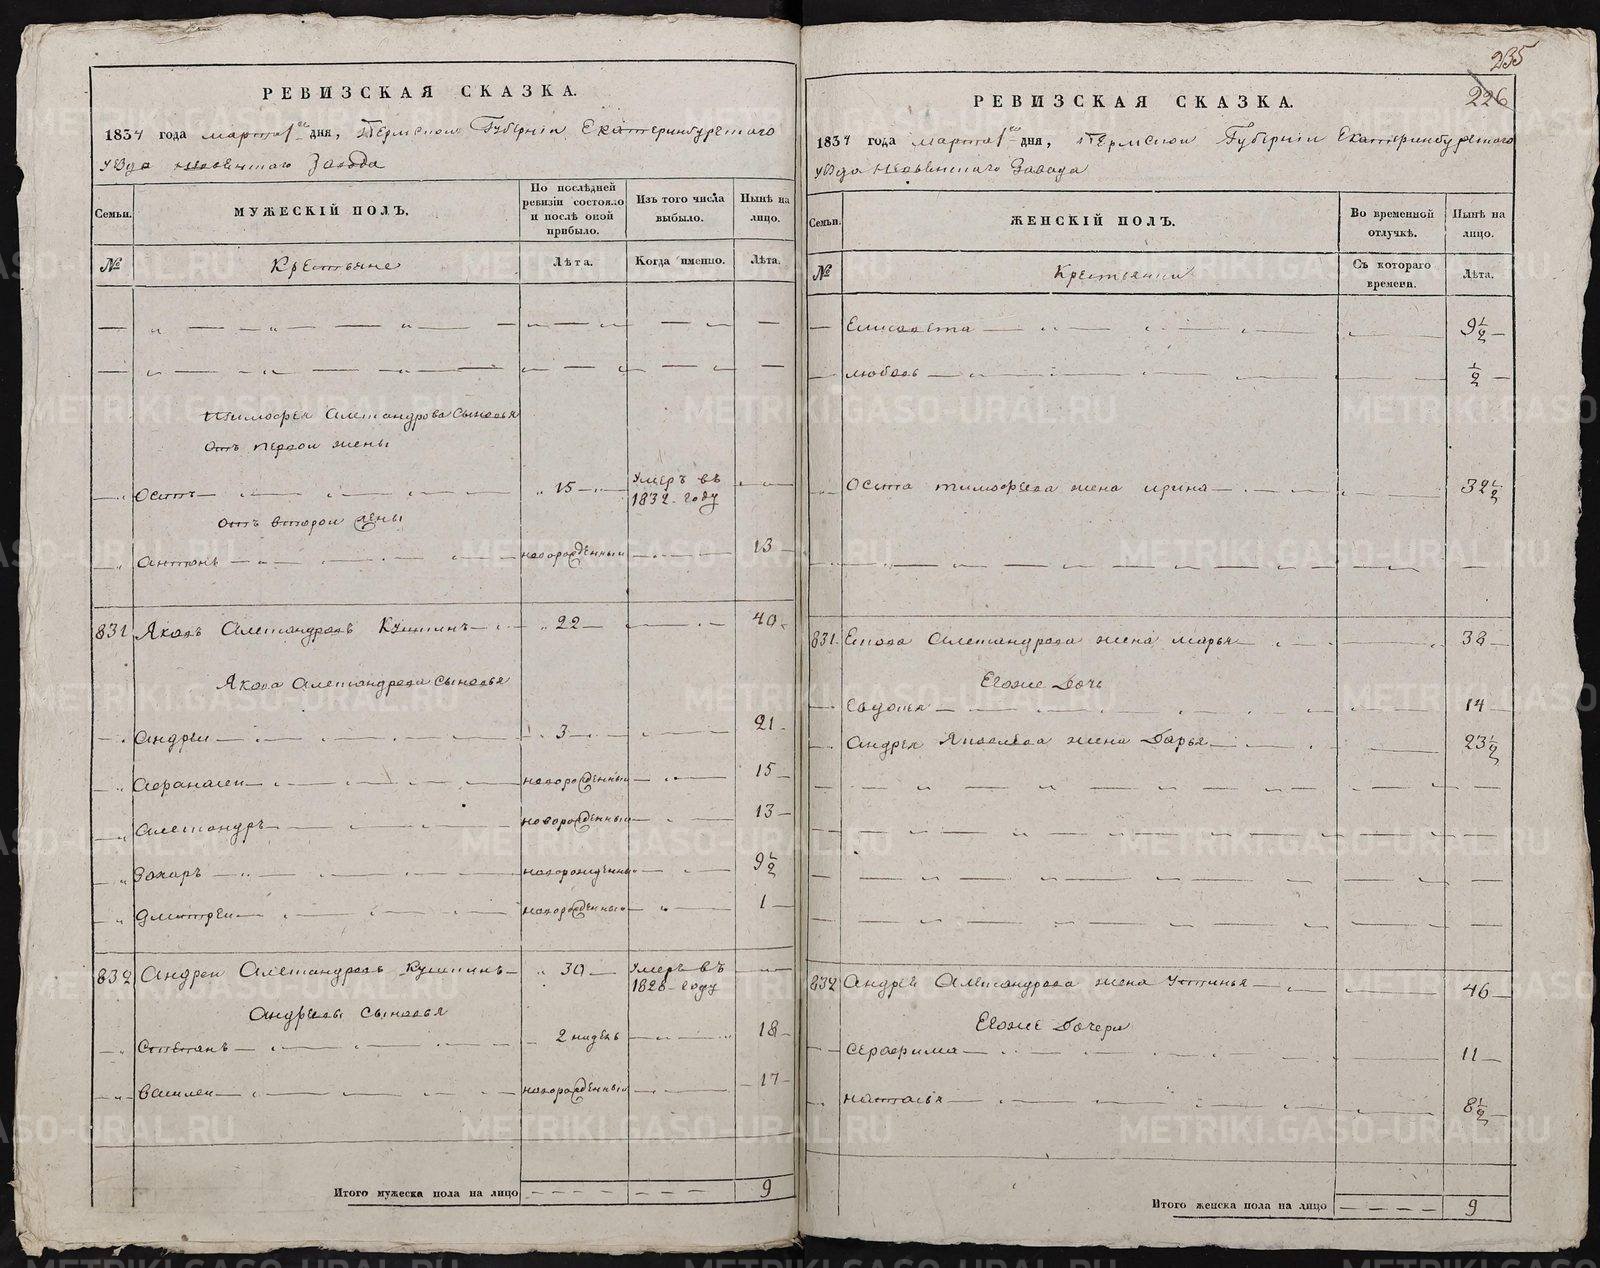 РЕВИЗСКАЯ СКАЗКА.
1834 года марта 1 дня, Пермской Губернiи Екатеринбургскаго
уѣзда Невьянскаго Завода
Семьи. МУЖЕСКIЙ ПОЛЪ. По послѣдней ревизiи состояло и послѣ оной прибыло. Изъ того числа выбыло. Нынѣ на лицо.
№ Крестьяне Лѣта. Когда именно. Лѣта.
Тимофея Александрова сыновья
отъ первой жены
Осипъ 15 Умеръ въ 1832 году
отъ второй жены
Антонъ новорожденный 13
831 Яковъ Александровъ 22 40
Якова Александрова сыновья
Андрей 3 21
Афанасей новорожденный 15
Александръ новорожденный 13
Захаръ новорожденный 9 1/2
Дмитрей новорожденный 1
832 Андрей Александровъ 30 Умеръ въ 1828 году
Андреевы сыновья
Степанъ 2 нидель 18
Василей новорожденный 17
Итого мужеска пола на лицо 9
235
226
РЕВИЗСКАЯ СКАЗКА.
1834 года марта 1 дня, Пермской Губернiи Екатеринбургскаго
уѣзда Невьянскаго Завода
Семьи. ЖЕНСКIЙ ПОЛЪ. Во временной отлучкѣ. Нынѣ на лицо.
№ Крестьянки Съ котораго времени. Лѣта.
Елисавета 9 1/2
Любовь 1/2
Осипа Тимофеева жена Ирина 32 1/2
831 Якова Александрова жена Марья 38
Егоже Дочь
Евдокья 14
Андрея Яковлева жена Дарья 23 1/2
832 Андрея Александрова жена Устинья 46
Егоже Дочери
Серафима 11
Наталья 8 1/2
Итого женска пола на лицо 9
METRIKI.GASO-URAL.RU